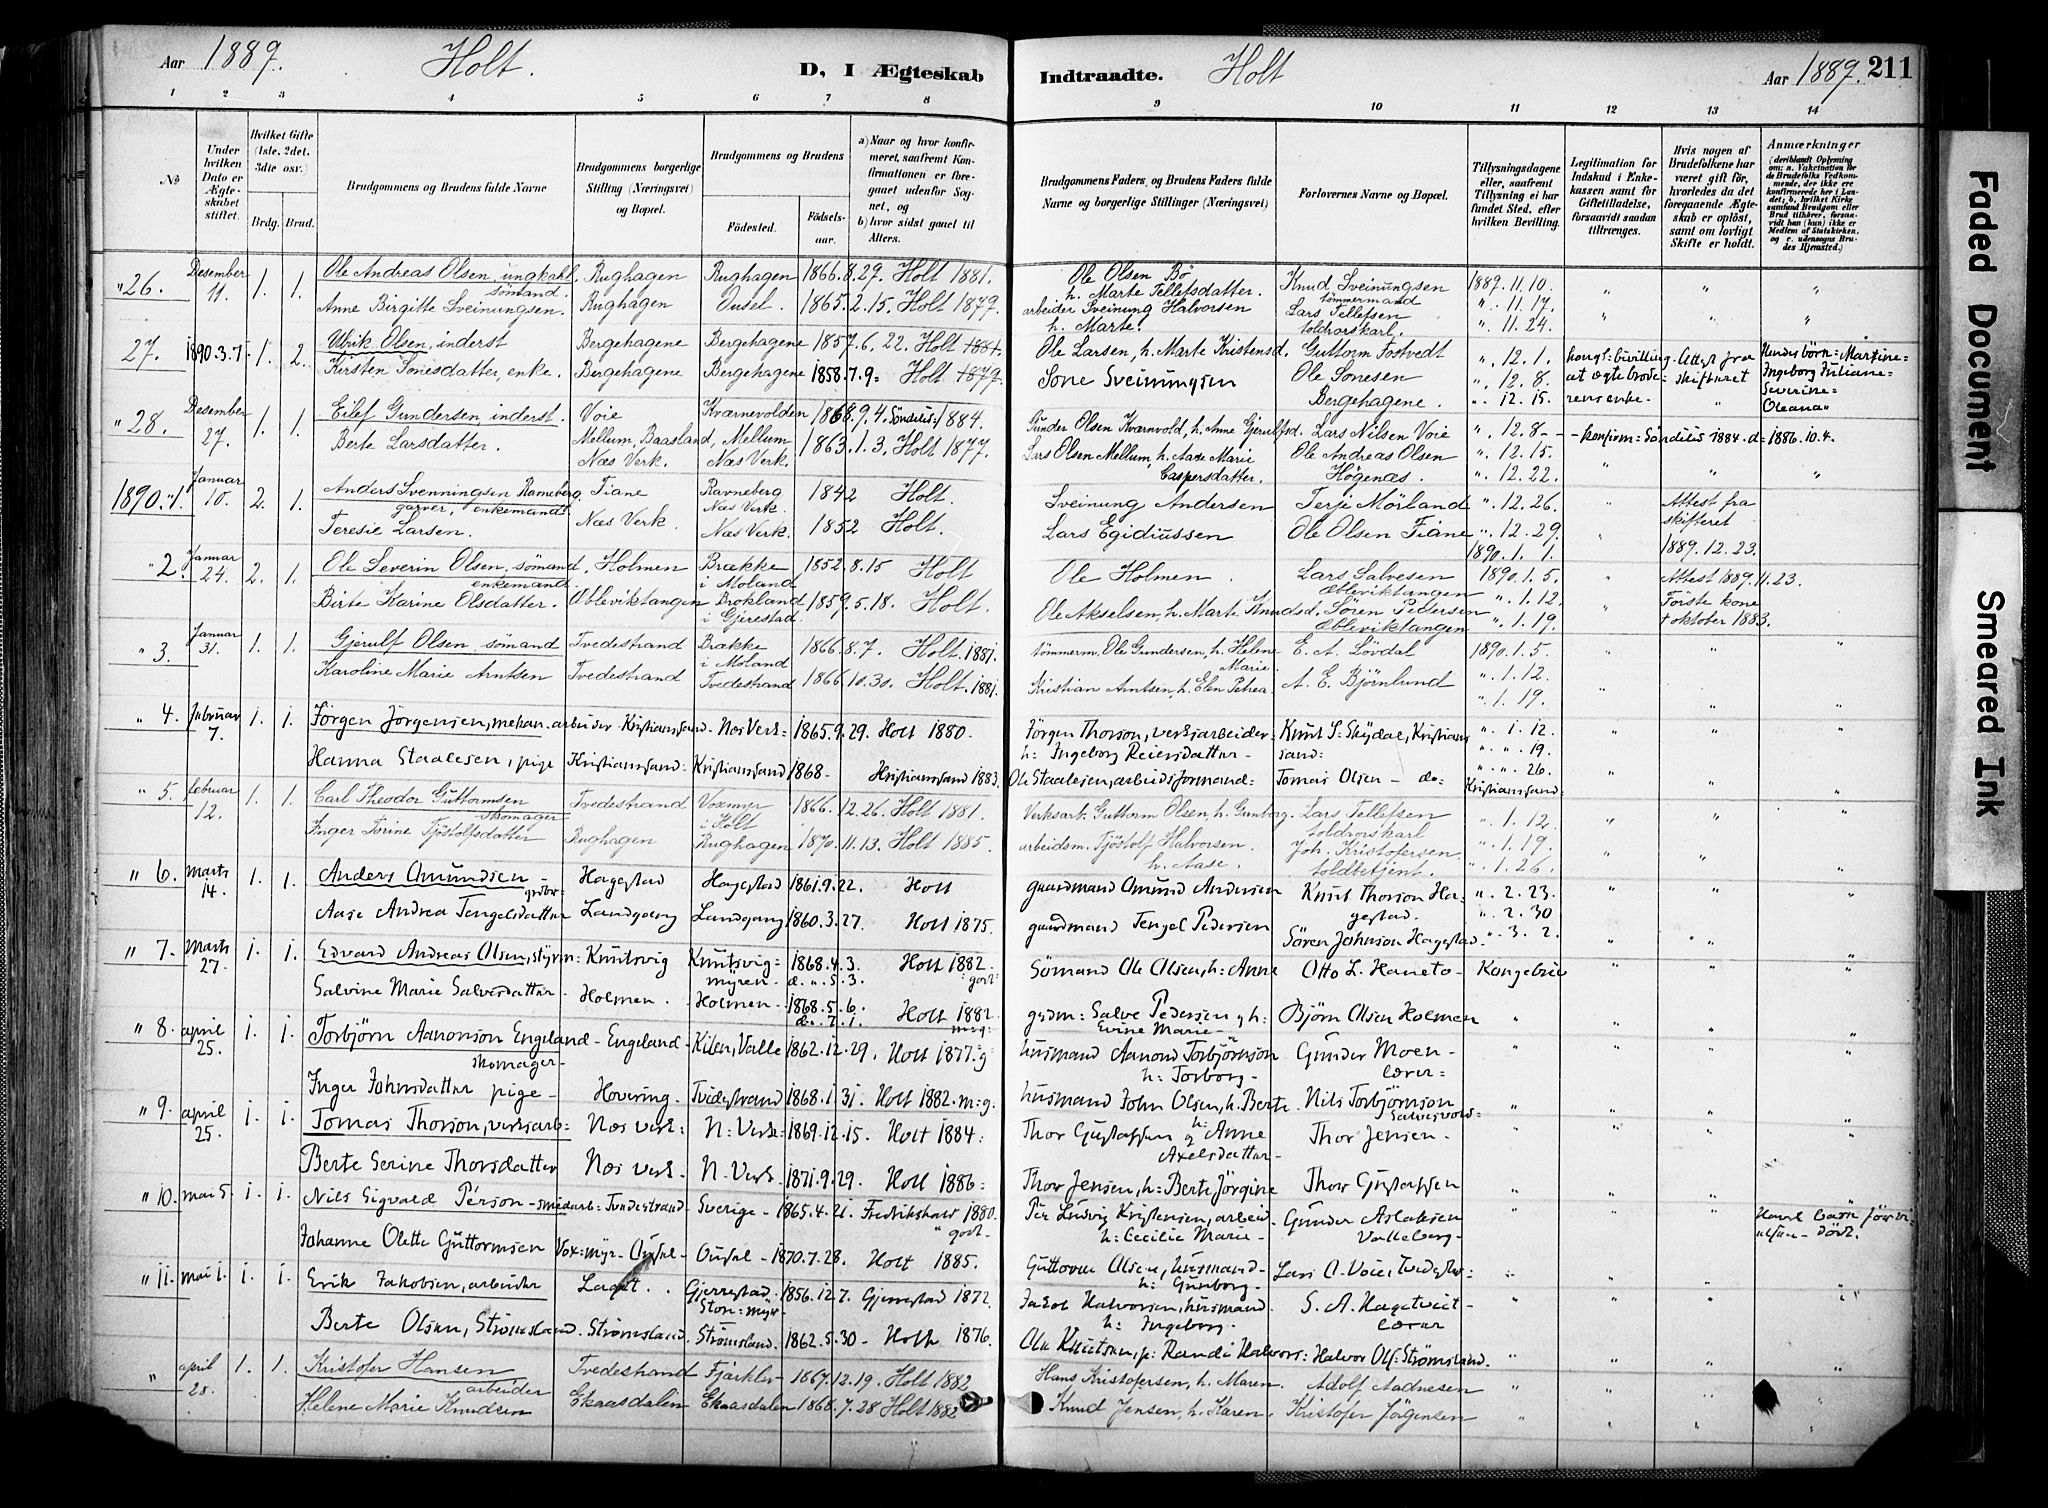 Aar 1889. Holt. D, I Ægteskab Indtraadte. Holt Aar 1889. 211
1 2 3 4 5 6 7 8 9 10 11 12 13 14
No
Under hvilken Dato er Ægteskabet stiftet.
Hvilket Gifte (1ste, 2det, 3die osv.)
Brdg. Brud.
Brudgommens og Brudens fulde Navne
Brudgommens borgerlige Stilling (Næringsvei) og Bopæl.
Brudgommens og Brudens
Fødested. Fødselsaar.
a) Naar og hvor konfirmeret, saafremt Konfirmationen er foregaaet udenfor Sognet, og
b) hvor sidst gaaet til Alters.
Brudgommens Faders, og Brudens Faders fulde Navne og borgerlige Stillinger (Næringsvei)
Forlovernes Navne og Bopæl.
Tillysningsdagene eller, saafremt Tillysning ei har fundet Sted, efter hvilken Bevilling.
Legitimation for Indskud i Enkekassen samt for Giftetilladelse, forsaavidt saadan tiltrænges.
Hvis nogen af Brudefolkene har været gift før, hvorledes da det foregaaende Ægteskab er opløst, samt om lovligt Skifte er holdt.
Anmærkninger
"26. Desember 11. 1. 1. Ole Andreas Olsen, ungkahl, sømand. Rughagen Rughagen 1866.8.27. Holt 1881. Ole Olsen Bø h. Marte Tellefsdatter. Knud Sveinungsen tømmermand 1889.11.10.
Anne Birgitte Sveinungsen. Rughagen Ousel. 1865.2.15. Holt 1879. arbeider Sveinung Halvorsen h. Marte. Lars Tellefsen toldrorskarl. ". 11.17. ". 11.24.
27. 1890.3.7. 1. 2. Ulrik Olsen, inderst Bergehagene Bergehagene 1857.6.22. Holt Ole Larsen, h. Marte Kristensd. Guttorm Fostvedt ". 12.1. kongl: bevilling at ægte broderens enke. Attest fra skifteret Hendes börn: Martine= Ingeborg Juliane= Severine= Oleana"
Kirsten Sonesdatter, enke. Bergehagene Bergehagene 1858.7.9= Holt 1879. Sone Sveinungsen Ole Sonesen Bergehagene. ". 12.8. ". 12.15.
"28. Desember 27. 1. 1. Eilef Gundersen, inderst. Voie Kværnevolden 1868.9.4. Söndeled 1884. Gunder Olsen Kværnvold, h. Anne Gjerulfsd. Lars Nilsen Voie ". 12.8. - konfirm= Söndeled 1884. d= 1886.10.4.
Berte Larsdatter. Mellum, Baasland, Næs Verk. Mellum Næs Verk. 1863.1.3. Holt 1877. Lars Olsen Mellum, h. Aase Marie Caspersdatter. Ole Andreas Olsen Høgenæs. ". 12.15. ". 12.22.
1890. "1. Januar 10. 2. 1. Anders Svenningsen Ravneberg, garver, enkemand. Fiane Ravneberg Næs Verk. 1842 Holt. Sveinung Andersen Terje Mörland ". 12.26. Attest fra skifteret 1889.12.23.
Teresie Larsen. Næs Verk. Næs Verk. 1852 Holt. Lars Egidiussen Ole Olsen Fiane ". 12.29. 1890.1.1.
"2. Januar 24. 2. 1. Ole Severin Olsen, sømand, enkemand. Holmen Brække i Moland 1852.8.15 Holt Ole Holmen. Lars Salvesen Æbleviktangen 1890.1.5. Attest 1889.11.23.
Birte Karine Olsdatter. Æbleviktangen Brokland i Gjerestad. 1859.5.18. Holt. Ole Akselsen, h. Marte Knudsd. Sören Pedersen Æbleviktangen ". 1.12. ". 1.19. Förste kone † oktober 1883.
"3. Januar 31. 1. 1. Gjerulf Olsen, sømand Tvedestrand Brække i Moland 1866.8.7. Holt. 1881. tömmerm. Ole Gundersen, h. Helene Marie. E. A. Lövdal 1890.1.5.
Karoline Marie Arntsen Tvedestrand Tvedestrand 1866.10.30. Holt. 1881. Kristian Arntsen, h. Elen Petrea. A. E. Björnlund ". 1.12. ". 1.19.
"4. Februar 7. 1. 1. Jörgen Jörgensen, mekan. arbeider Kristianssand. Næs Verk= 1865.9.29. Holt 1880. Jörgen Thorson, verksarbeider= h= Ingeborg Reiersdatter- Knut S. Skydal, Kristianssand= ". 1.12. ". ". 19. ". ". 26.
Hanna Staalesen, pige Kristianssand= Kristianssand 1868- Kristianssand 1883. Ole Staalesen, arbeidsformand= Tomas Olsen - do- Kristianssand=
"5. februar 12. 1. 1. Carl Theodor Guttormsen skomager Tvedestrand Voxmyr i Holt 1866.12.26. Holt 1881. Verksarb. Guttorm Olsen, h. Gunborg. Lars Tellefsen toldrorskarl ". 1.12.
Inger Torine Tjöstolfsdatter Rughagen Rughagen 1870.11.13. Holt 1885. arbeidsm. Tjöstolf Halvorsen. h. Aase. Joh. Kristofersen, toldbetjent. ". 1.19. ". 1.26.
"6. Marts 14. 1. 1. Anders Amundsen - Hagestad Hagestad 1861.9.22. Holt gaardmand Amund Andersen Knut Thorson Hagestad. ". 2.23.
Aase Andrea Tengelsdatter Landgang Landgang 1860.3.27. Holt 1875. gaardmand Tengel Pedersen Sören Johnson Hagestad. ". 2.30 ". 3.2.
"7. Marts 27. 1. 1. Edvard Andreas Olsen, styrm= Knutsvig Knutsvig= myren= 1868.4.3. d. ". 5.3. Holt 1882. godt= Sömand Ole Olsen, h= Anne Otto L. Haneto- Kongebrev
Salvine Marie Salvesdatter- Holmen. Holmen- 1868.5.6. d. 7.1. Holt 1882. m=g= grdm= Salve Pedersen, h= Evine Marie- Björn Olsen Holmen
"8. april 25. 1. 1. Torbjörn Aanonson Engeland skomager- Engeland Kilen, Valle 1862.12.29. Holt 1877.g husmand Aanond Torbjörnson h= Torborg- Gunder Moen- lærer=
Inger Johnsdatter pige- Hovering- Tvedestrand 1868.1.31. Holt 1882. m=g= husmand John Olsen, h. Berte. Nils Torbjörnson
"9. april 25. 1. 1. Tomas Thorson, verksarb= Næs verk= N= Verk= 1869.12.15. Holt 1884= Thor Gustafsen h= og Anne Axelsdatter- Thor Jensen-
Berte Serine Thorsdatter Næs verk- N- Verk 1871.9.29. Holt 1886= Thor Jensen, h= Berte Jörgine Thor Gustafsen
"10. mai 5. 1. 1. Nils Sigvald Pérson - smedarb= Tvedestrand- Sverige- 1865.4.21. Fredrikshald 1880. godt- Per Ludvig Kristensen, arbeid h= Cecilie Marie- Gunder Aslaksen Valleberg- Havd
Johanne Olette Guttormsen Vox=myr- Ousel- Ousel- 1870.7.28. Holt 1885. Guttorm Olsen, husmand- h= Gunborg- Lars A. Voie, Tvedestr=
"11. mai 1. 1. 1. Erik Jakobsen, arbeider Laget. Gjerrestad= Ston=myr 1856.12.7. Gjerrestad 1872. Jakob Halvorsen, husmand. h= Ingeborg- S. A. Hagetveit- lærer
Berte Olsen, Strömsland. Strömsland. Strömsland. 1862.5.30- Holt 1876. Ole Knutson, h= Randi Halvors= Halvor Ols= Strömsland.
" april 28. 1. 1. Kristofer Hansen arbeider Tvedestrand Fjærklev 1867.12.19. Holt 1882 Hans Kristofersen, h. Maren. Adolf Aadnesen
Helene Marie Knudsen Ekaasdalen Ekaasdalen 1868.7.28 Holt 1882 Knud Jensen, h. Karen. Kristofer Jørgensen
Faded Document
Smeared Ink